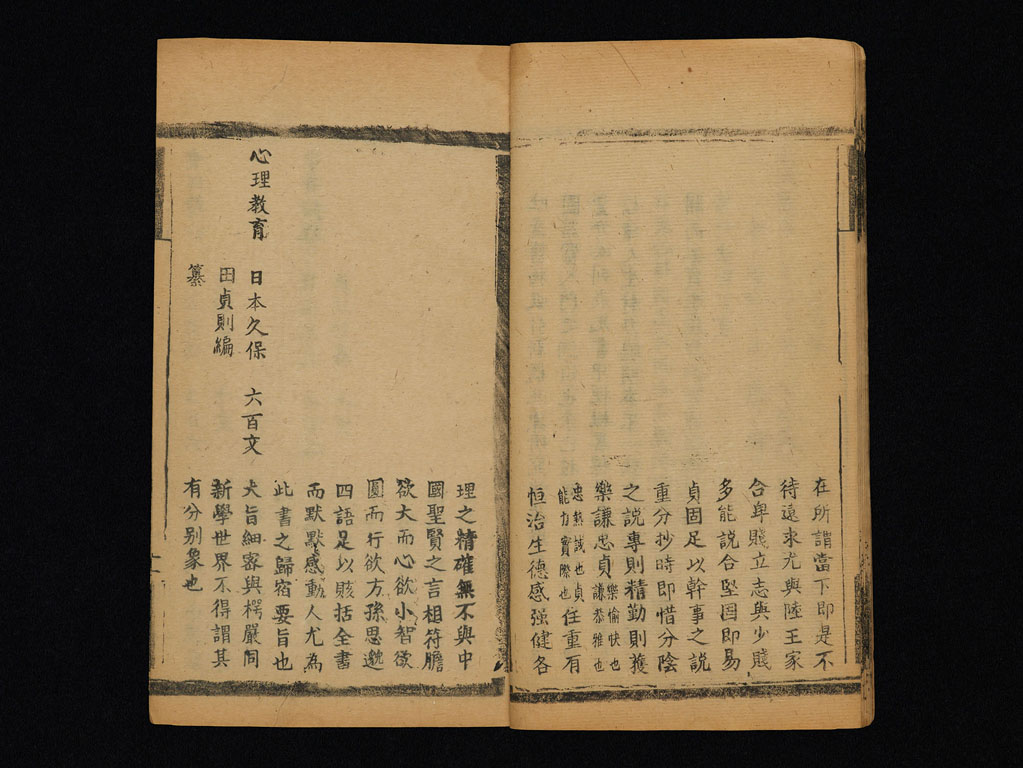 在所謂當下即是不
待遠求尤與陸王家
合卑賤立志與少賤
多能說合堅固即易
貞固足以幹事之說
重分抄時即惜分陰
之說專則精勤則獲
樂謙忠貞
樂愉快也
謙恭雅也
忠熱誠也貞
能力實際也
任重有
恒治生德感强健各
理之精確無不與中
國聖賢之言相符膽
欲大而心欲小智欲
圓而行欲方孫思邈
四語足以賅括全書
而默默感動人尤為
此書之歸宿要旨也
心理教育 日本久保 六百文
田貞則編
纂
大旨細密與楞嚴同
新學世界不得謂其
有分别象也